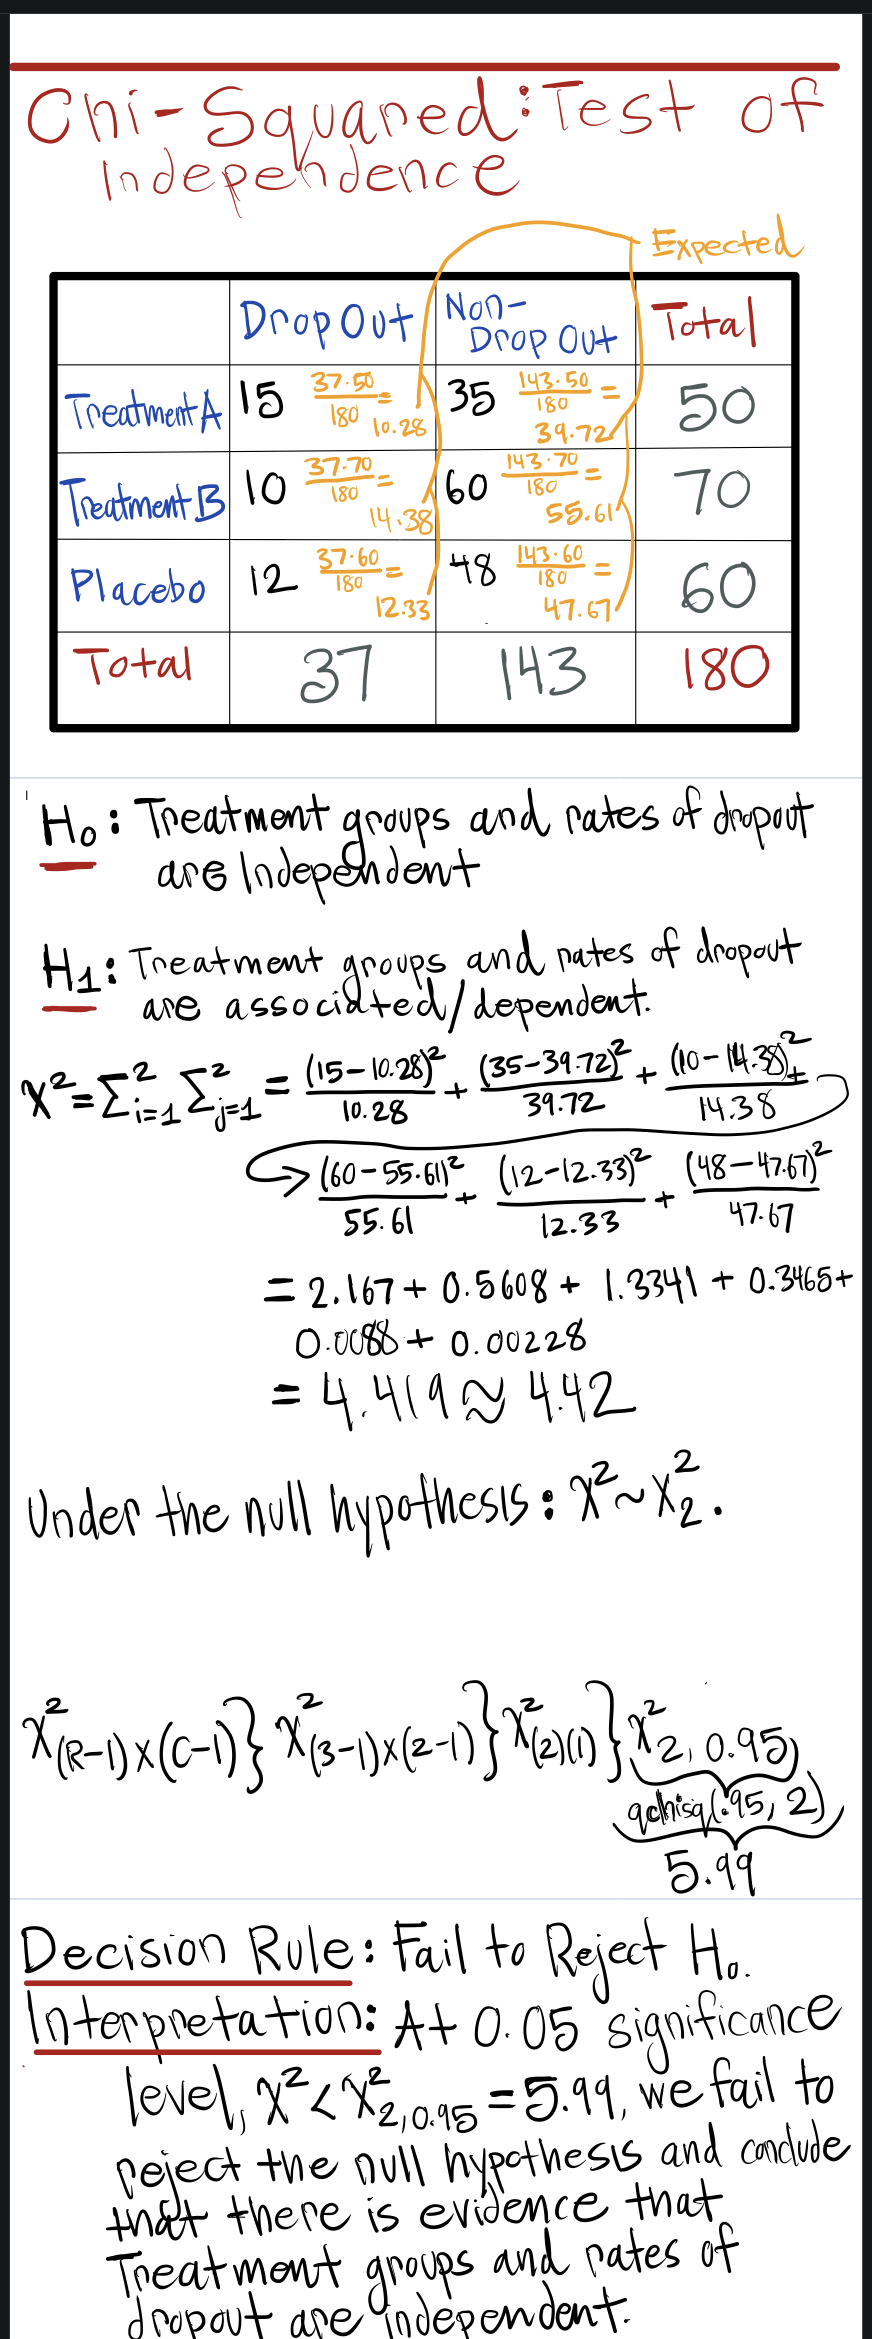 Chi-Squared: Test of
Independence
Expected
Drop Out Non-Drop Out Total
Treatment A 15 37·50/180 = 10.28 35 143·50/180 = 39.72 50
Treatment B 10 37·70/180 = 14.38 60 143·70/180 = 55.61 70
Placebo 12 37·60/180 = 12.33 48 143·60/180 = 47.67 60
Total 37 143 180
H₀: Treatment groups and rates of dropout
are Independent
H₁: Treatment groups and rates of dropout
are associated/dependent.
χ² = Σ²ᵢ₌₁ Σ²ⱼ₌₁ = (15-10.28)²/10.28 + (35-39.72)²/39.72 + (10-14.38)²/14.38 +
(60-55.61)²/55.61 + (12-12.33)²/12.33 + (48-47.67)²/47.67
= 2.167 + 0.5608 + 1.3341 + 0.3465 +
0.0088 + 0.00228
= 4.419 ≈ 4.42
Under the null hypothesis: χ² ~ χ²₂.
χ²(R-1)x(C-1) } χ²(3-1)x(2-1) } χ²(2)(1) } χ²2, 0.95
qchisq(.95, 2)
5.99
Decision Rule: Fail to Reject H₀.
Interpretation: At 0.05 significance
level, χ² < χ²2,0.95 = 5.99, we fail to
reject the null hypothesis and conclude
that there is evidence that
Treatment groups and rates of
dropout are independent.